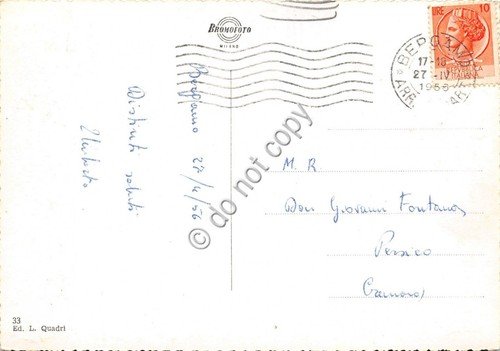 BROMOFOTO
MILANO
LIRE 10
BERGAMO
17-18
27 -IV
1956
ARR.
Bergamo 27/4/56
Distinti saluti
Umberto
M. R
Don Giovanni Fontana
Persico
Cremona
do not copy
33
Ed. L. Quadri